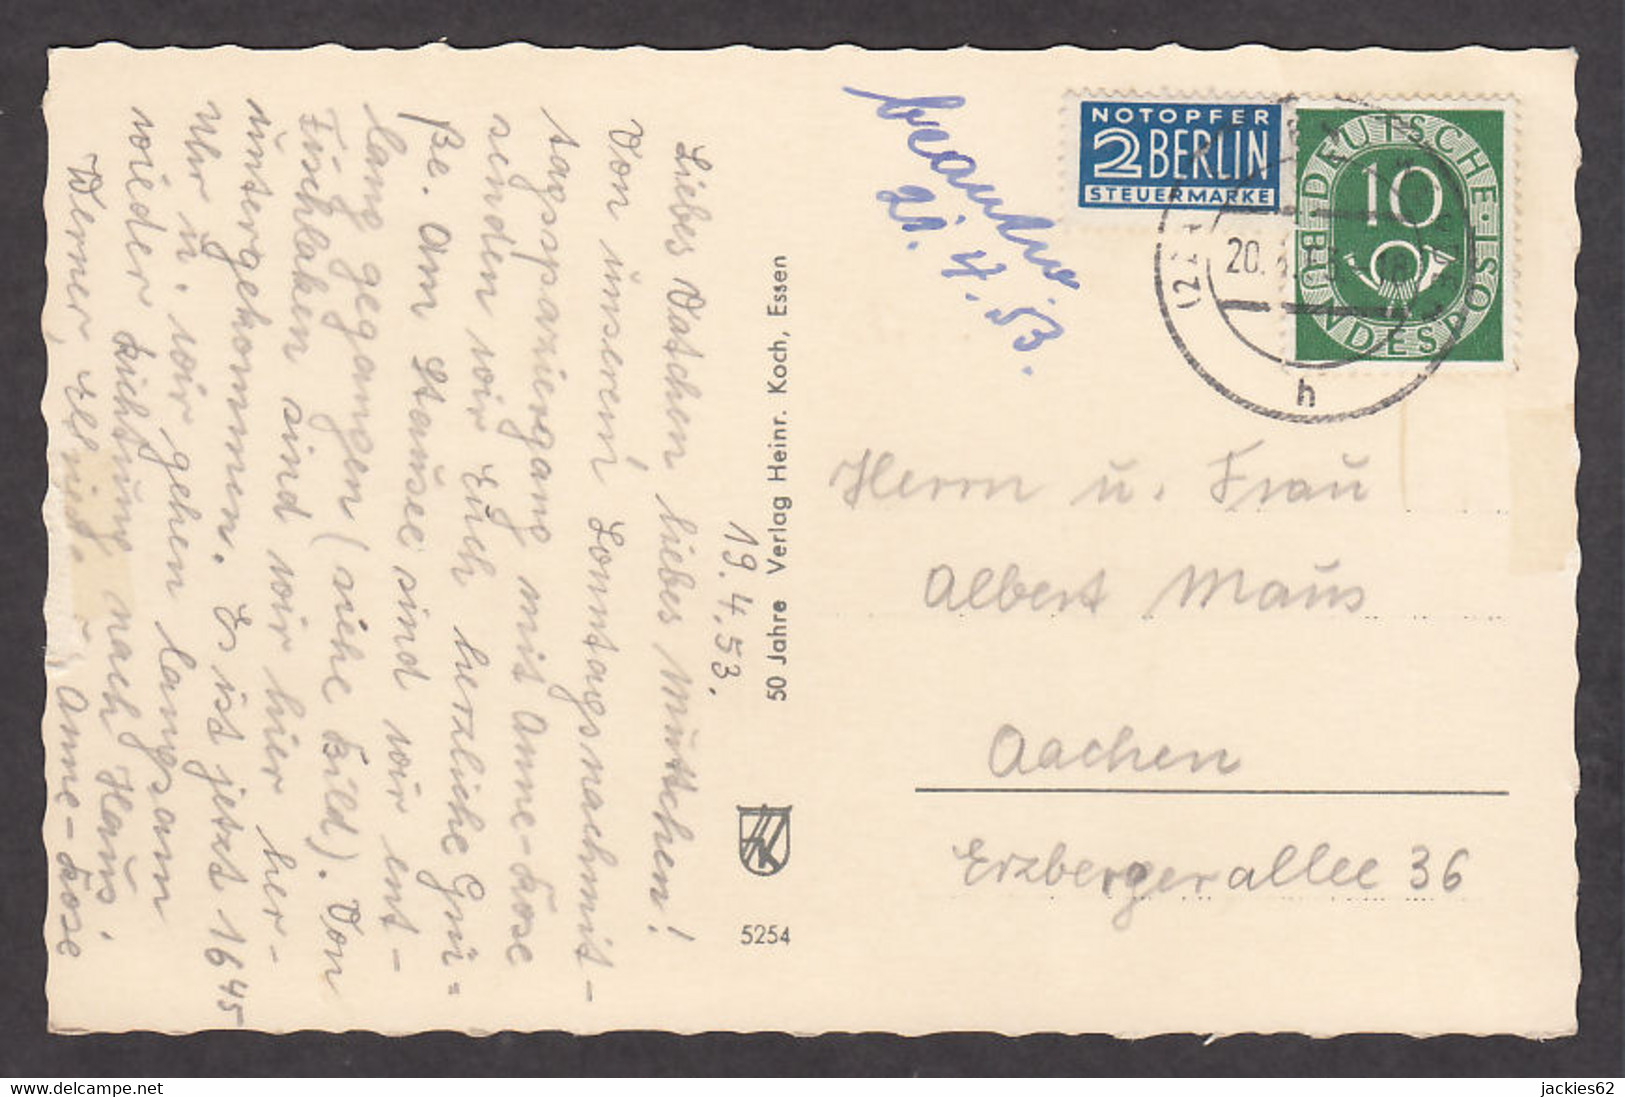 19.4.53.
Liebes Vatchen liebes Muttchen!
Von unserem Sonntagsnachmit-
tagsspaziergang mit Anne-Rose
senden wir Euch herzliche Grü=
ße. Am Stausee sind wir ent-
lang gegangen (siehe Bild). Von
Fischlaken sind wir hier her-
untergekommen. Es ist jetzt 1645
Uhr u. wir gehen langsam
wieder Richtung nach Haus.
Werner, u. Anne-Rose
50 Jahre Verlag Heinr. Koch, Essen
HK
5254
beantw.
21.4.53.
NOTOPFER
2 BERLIN
STEUERMARKE
DEUTSCHE BUNDESPOST
10
(22
20.
h
Herrn u. Frau
Albert Maus
Aachen
Erzbergerallee 36
jackies62